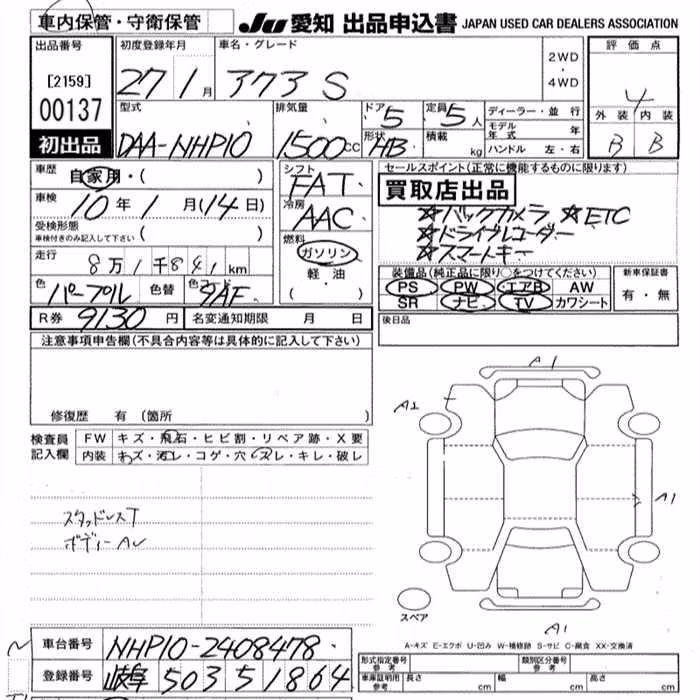 車内保管・守衛保管 JU 愛知 出品申込書 JAPAN USED CAR DEALERS ASSOCIATION
出品番号 初度登録年月 車名・グレード 2WD・4WD 評価点
[2159] 27 1月 373 S 4
00137 型式 排気量 ドア 5 定員 5人 ディーラー・並行 外装 内装
初出品 DAA-NHP10 1500cc 形状 HB 積載 kg モデル年式 年 B B
ハンドル 左・右
車歴 自家用・( ) シフト FAT セールスポイント(正常に機能するものに限ります)
車検 10年 1月(14日) 冷房 AAC 買取店出品
受検形態 ☆バックカメラ ☆ETC
車検付きのみ記入して下さい ( ) 燃料 ☆ドライブレコーダー
走行 8万1千841km ガソリン ☆スマートキー
軽油 装備品(純正品に限り○をつけてください) 新車保証書
色 パープル 色替 色コード 9AF ( ) PS PW エアB AW 有・無
SR ナビ TV カワシート
R券 9130円 名変通知期限 月 日 後日品
注意事項申告欄(不具合内容等は具体的に記入して下さい)
A1
A2
修復歴 有 (箇所 )
検査員記入欄 FW キズ・飛石・ヒビ割・リペア跡・X要
内装 キズ・汚レ・コゲ・穴・スレ・キレ・破レ
A1
スタッドレスT
ボディーAU
スペア
A1
A-キズ E-エクボ U-凹み W-補修跡 S-サビ C-腐食 XX-交換済
車台番号 NHP10-2408478
登録番号 岐阜 503 5 1864
形式指定番号 参考 類別区分番号 参考
車庫証明用 参考 長さ cm 幅 cm 高さ cm